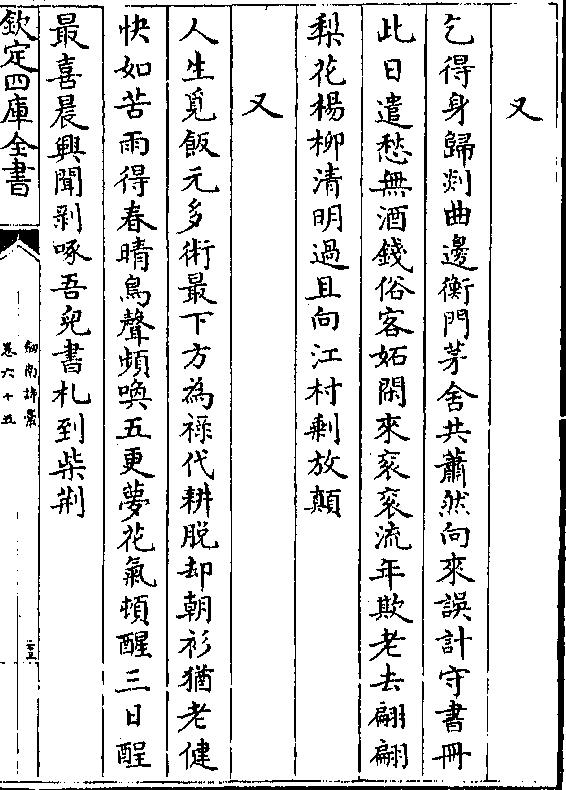 又
乞得身歸剡曲邊衡門茅舍共蕭然向來誤計守書冊
此日遣愁無酒錢俗客妬閑來衮衮流年欺老去翩翩
梨花楊柳清明過且向江村剩放顛
又
人生覓飯元多術最下方為祿代耕脱却朝衫猶老健
快如苦雨得春晴鳥聲頻喚五更夢花氣頓醒三日酲
最喜晨興聞剥啄吾兒書札到柴荆
欽定四庫全書
劒南詩藁
卷六十五